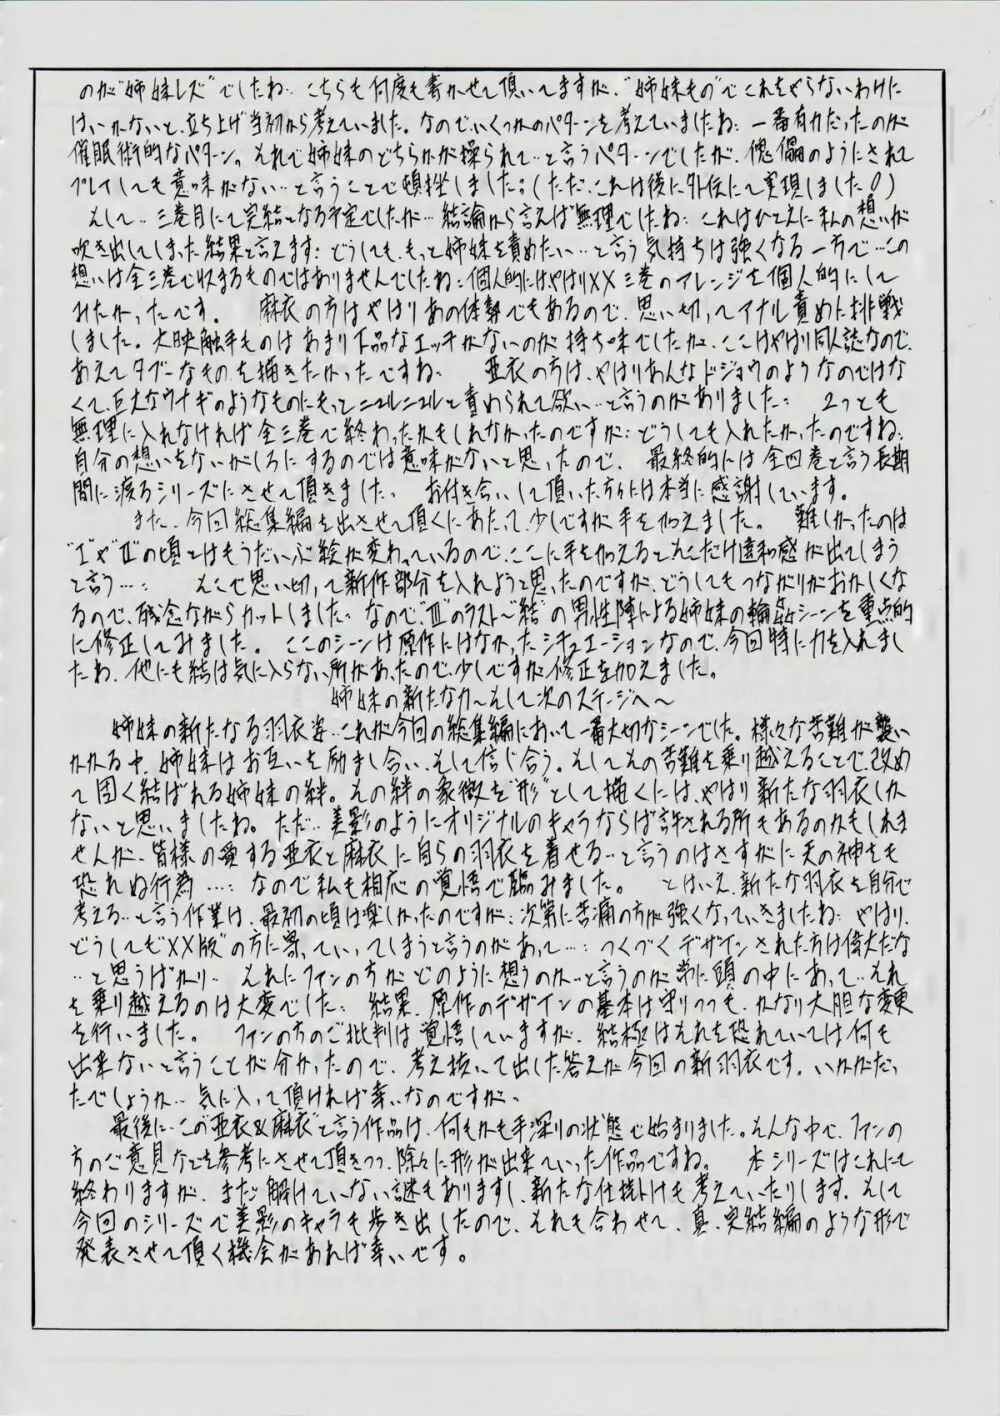 のが"姉妹レズ"でしたね… こちらも何度も書かせて頂いてますが、"姉妹もの"でこれをやらないわけに
はいかないと、立ち上げ当初から考えていました。なのでいくつかのパターンを考えていましたね… 一番有力だったのが
催眠術的なパターン。それで姉妹のどちらかが操られて…と言うパターンでしたが、傀儡のようにされて
プレイしても意味がない…と言うことで頓挫しました…(ただ、これは後に外伝にて実現しました!)
そして…三巻目にて完結となる予定でしたが…結論から言えば無理でしたね… これはひとえに私の想いが
吹き出してしまった結果と言えます… どうしても、もっと姉妹を責めたい…と言う気持ちは強くなる一方で…この
想いは全三巻で収まるものではありませんでしたね… 個人的にはやはりXX三巻のアレンジを個人的にして
みたかったです。 麻衣の方はやはりあの体勢でもあるので、思い切ってアナル責めに挑戦
しました。大映触手ものはあまり下品なエッチがないのが持ち味でしたが、ここはやはり同人誌なので、
あえてタブーなものを描きたかったですね… 亜衣の方は、やはりあんなドジョウのようなのではな
くて、巨大なウナギのようなものにもっとニュルニュルと責められて欲い…と言うのがありました… 2つとも
無理に入れなければ全三巻で終わったかもしれなかったのですが… どうしても入れたかったのですね…
自分の想いをないがしろにするのでは意味がないと思ったので、最終的には全四巻と言う長期
間に渡るシリーズにさせて頂きました、 お付き合いして頂いた方々には本当に感謝しています。
また、今回総集編を出させて頂くにあたって、少しですが手を加えました。 難しかったのは
"Ⅰ"や"Ⅱ"の頃とはもうだいぶ絵が変わっているので、ここに手を加えるとそこだけ違和感が出てしまう
と言う…… そこで思い切って新作部分を入れようと思ったのですが、どうしてもつながりがおかしくな
るので、残念ながらカットしました… なので"Ⅲ"のラスト〜結"の男性陣による姉妹の輪姦シーンを重点的
に修正してみました。 ここのシーンは原作にはなかったシチュエーションなので、今回特に力を入れまし
たね、他にも結は気に入らない所があったので、少しですが修正を加えました。
姉妹の新たな力〜そして次のステージへ〜
姉妹の新たなる羽衣姿…これが今回の総集編において一番大切なシーンでした。様々な苦難が襲い
かかる中、姉妹はお互いを励まし合い、そして信じ合う。そしてその苦難を乗り越えることで、改め
て固く結ばれる姉妹の絆。その絆の象徴を"形"として描くには、やはり新たな羽衣しか
ないと思いましたね。ただ… 美影のようにオリジナルのキャラならば許される所もあるのかもしれま
せんが、皆様の愛する亜衣と麻衣に自らの羽衣を着せる…と言うのはさすがに天の神をも
恐れぬ行為……なので私も相応の覚悟で臨みました。 とはいえ、新たな羽衣を自分で
考える…と言う作業は、最初の頃は楽しかったのですが… 次第に苦痛の方が強くなっていきましたね… やはり、
どうしても"XX版"の方に寄っていってしまうと言うのがあって…… つくづくデザインされた方は偉大だな
…と思うばかり… それにファンの方がどのように想うのか…と言うのが常に頭の中にあって…それ
を乗り越えるのは大変でした… 結果、原作のデザインの基本は守りつつも、かなり大胆な変更
を行いました。 ファンの方のご批判は覚悟していますが、結極はそれを恐れていては何も
出来ないと言うことが分かったので、考え抜いて出した答えが今回の新羽衣です。いかがだっ
たでしょうか…気に入って頂ければ幸いなのですが、
最後に…この"亜衣&麻衣"と言う作品は、何もかも手深りの状態で始まりました。そんな中で、ファンの
方のご意見などを参考にさせて頂きつつ、除々に形が出来ていった作品ですね。 本シリーズはこれにて
終わりますが、まだ解けていない謎もありますし、新たな仕掛けも考えていたりします。そして
今回のシリーズで美影のキャラも歩き出したので、それも合わせて、真・完結編のような形で
発表させて頂く機会があれば幸いです。